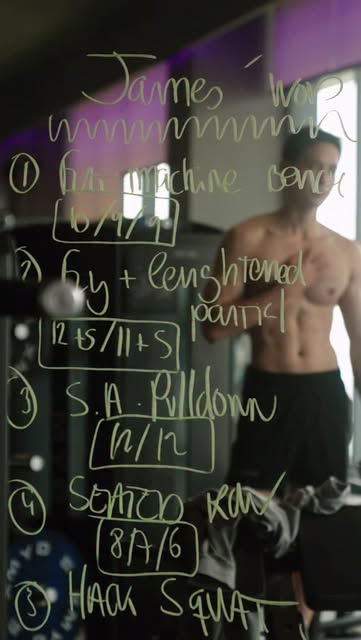 James' Wor
① machine bench
10/9/9
② Fly + lenghtened
partial
12+5/11+5
③ S.A. Pulldown
12/12
④ SEATED ROW
8/7/6
⑤ HACK SQUAT